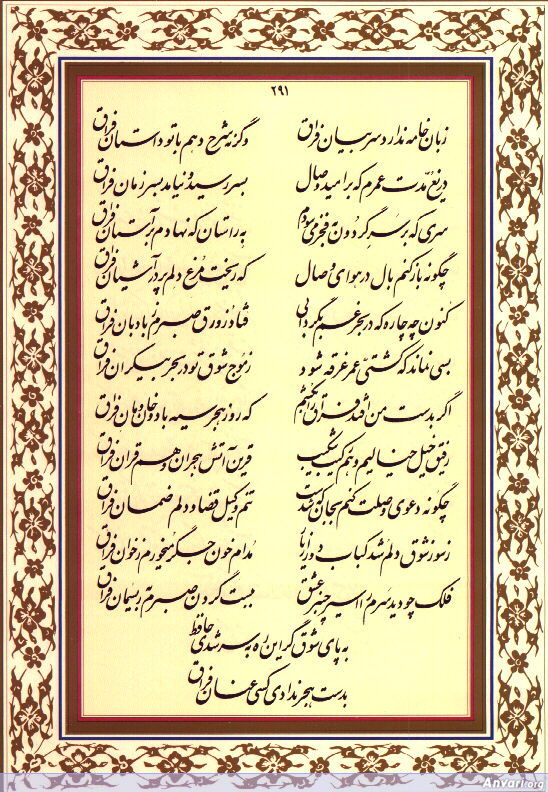 ۲۹۱
زبان خامه ندارد سر بیان فراق وگرنه شرح دهم با تو داستان فراق
دریغ مدت عمرم که بر امید وصال بسر رسید و نیامد بسر زمان فراق
سری که بر سر گردون به فخر می‌سودم به راستان که نهادم بر آستان فراق
چگونه باز کنم بال در هوای وصال که ریخت مرغ دلم پر در آشیان فراق
کنون چه چاره که در بحر غم بگردابی فتاد زورق صبرم ز بادبان فراق
بسی نماند که کشتی عمر غرقه شود ز موج شوق تو در بحر بیکران فراق
اگر بدست من افتد فراق را بکشم که روز هجر سیه باد و خان و مان فراق
رفیق خیل خیالیم و هم رکیب شکیب قرین آتش هجران و هم قران فراق
چگونه دعوی وصلت کنم بجان که شدست تنم وکیل قضا و دلم ضمان فراق
ز سوز شوق دلم شد کباب دور از یار مدام خون جگر میخورم ز خوان فراق
فلک چو دید سرم را اسیر چنبر عشق ببست گردن صبرم به ریسمان فراق
به پای شوق گر این ره به سر شدی حافظ
بدست هجر ندادی کسی عنان فراق
Anvari.org